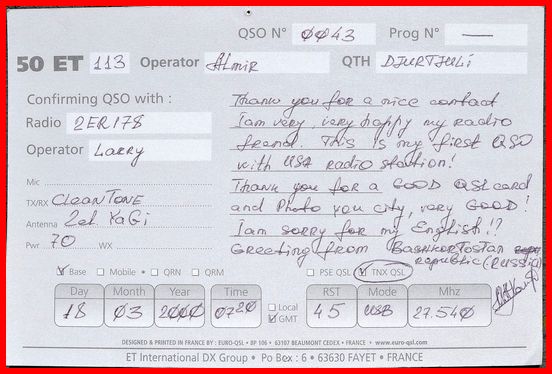 QSO N° 0043 Prog N° —
50 ET 113 Operator Almir QTH DJURTJULI
Confirming QSO with :
Radio 2ER178
Operator LARRY
Mic
TX/RX CLEANTONE
Antenna 2el YAGI
Pwr 70 WX
Thank you for a nice contact
I am very, very happy my radio
friend. This is my first QSO
with USA radio station!
Thank you for a GOOD QSL card
and Photo you city, very GOOD!
I am sorry for my English!?
Greeting from BASHKORTOSTAN
republic (RUSSIA)
Base Mobile • QRN QRM PSE QSL TNX QSL
Day Month Year Time Local GMT RST Mode Mhz
18 03 2000 0720 45 USB 27.540
DESIGNED & PRINTED IN FRANCE BY : EURO-QSL • BP 106 • 63107 BEAUMONT CEDEX • FRANCE • www.euro-qsl.com
ET International DX Group • Po Box : 6 • 63630 FAYET • FRANCE